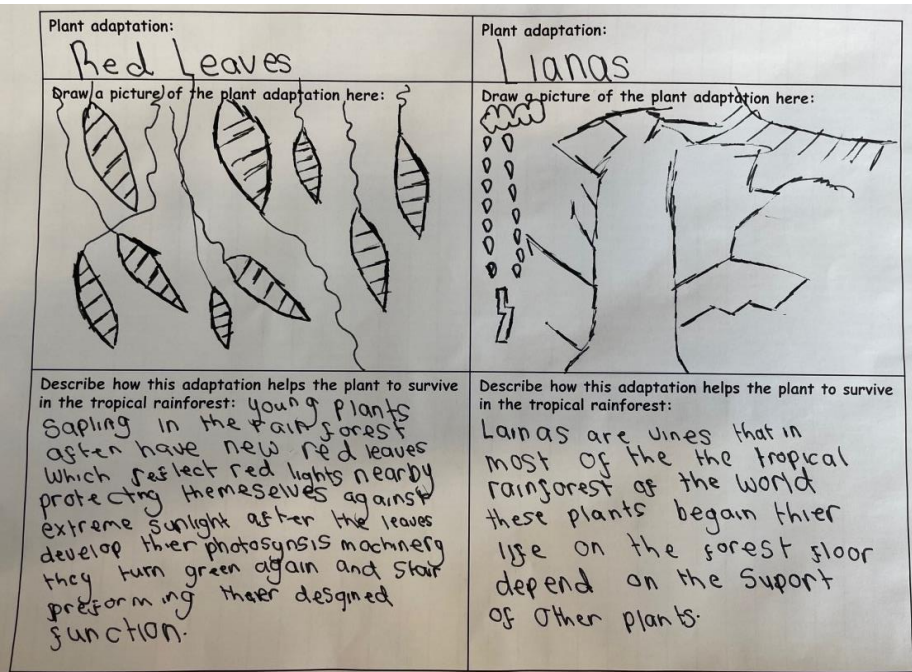 Plant adaptation:
Red Leaves
Draw a picture of the plant adaptation here:
Describe how this adaptation helps the plant to survive
in the tropical rainforest: young plants
Sapling in the rain forest
often have new red leaves
which reflect red lights nearby
protecting themeselves against
extreme sunlight after the leaves
develop thier photosynsis machinery
they turn green again and start
preforming theier desgined
function.
Plant adaptation:
Lianas
Draw a picture of the plant adaptation here:
Describe how this adaptation helps the plant to survive
in the tropical rainforest:
Lainas are vines that in
most of the the tropical
rainforest of the world
these plants begain thier
life on the forest floor
depend on the Suport
of other plants.